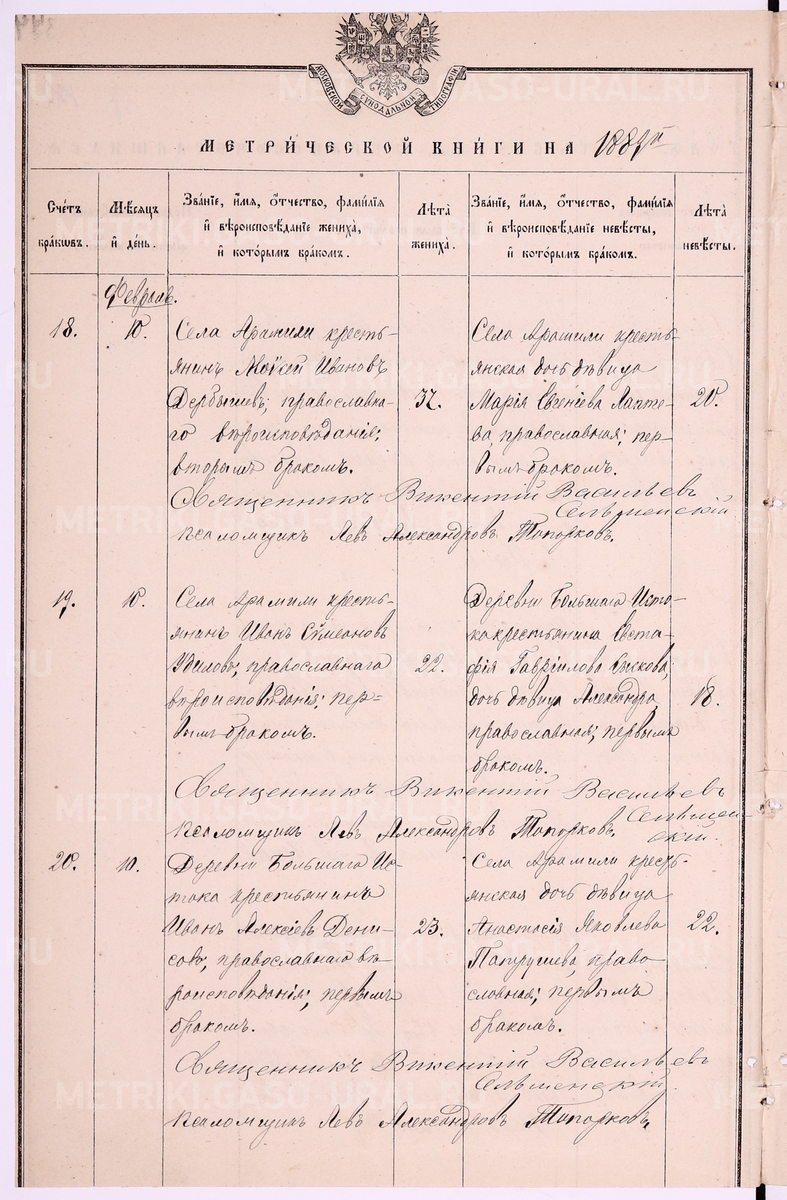 МОСКОВСКОЙ СѴНОДАЛЬНОЙ ТИПОГРАФІИ
МЕТРИ́ЧЕСКОЙ КНИ́ГИ НА 188 й
Сче́тъ бра́кѡвъ.
Мѣ́сяцъ и҆ де́нь.
Зва́нїе, и҆́мя, ѻ҆́тчество, фами́лїя и҆ вѣроисповѣ́данїе жениха̀, и҆ кото́рымъ бра́комъ.
Лѣ́та жениха̀.
Зва́нїе, и҆́мя, ѻ҆́тчество, фами́лїя и҆ вѣроисповѣ́данїе невѣ́сты, и҆ кото́рымъ бра́комъ.
Лѣ́та невѣ́сты.
Февраль.
18.
10.
Села Арамили кресть-
янинъ Моѵсей Ивановъ
Дербышевъ, православна-
го вѣроисповѣданія;
вторымъ бракомъ.
32.
Села Арамили кресть-
янская дочь дѣвица
Марія Евгеніева Лапте-
ва, православная; пер-
вымъ бракомъ.
20.
Священникъ Викентій Васильевъ
Сельменскій
Псаломщикъ Левъ Александровъ Топорковъ.
19.
10.
Села Арамили кресть-
янинъ Иванъ Сѵмеоновъ
православнаго
вѣроисповѣданія; пер-
вымъ бракомъ.
22.
Деревни Большаго Исто-
ка крестьянина Евста-
фія Гавріилова
дочь дѣвица Александра,
православная; первымъ
бракомъ.
18.
Священникъ Викентій Васильевъ
Сельмен-
скій.
Псаломщикъ Левъ Александровъ Топорковъ.
20.
10.
Деревни Большаго Ис-
тока крестьянинъ
Иванъ Алексіевъ Дени-
совъ, православнаго вѣ-
роисповѣданія; первымъ
бракомъ.
23.
Села Арамили кресть-
янская дочь дѣвица
Анастасія Яковлева
Папрушева, право-
славная; первымъ
бракомъ.
22.
Священникъ Викентій Васильевъ
Сельменскій.
Псаломщикъ Левъ Александровъ Топорковъ.